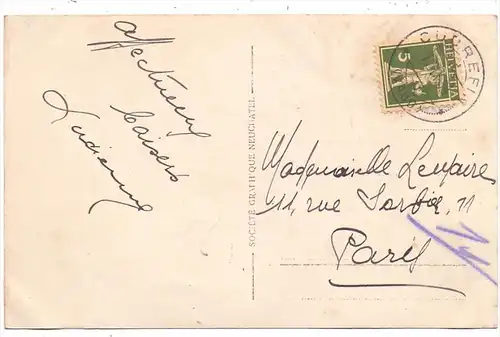 Affectueux
baisers
SOCIÉTÉ GRAPHIQUE NEUCHATEL
5
HELVETIA
Mademoiselle Lemaire
11, rue Sorbier, 11
Paris